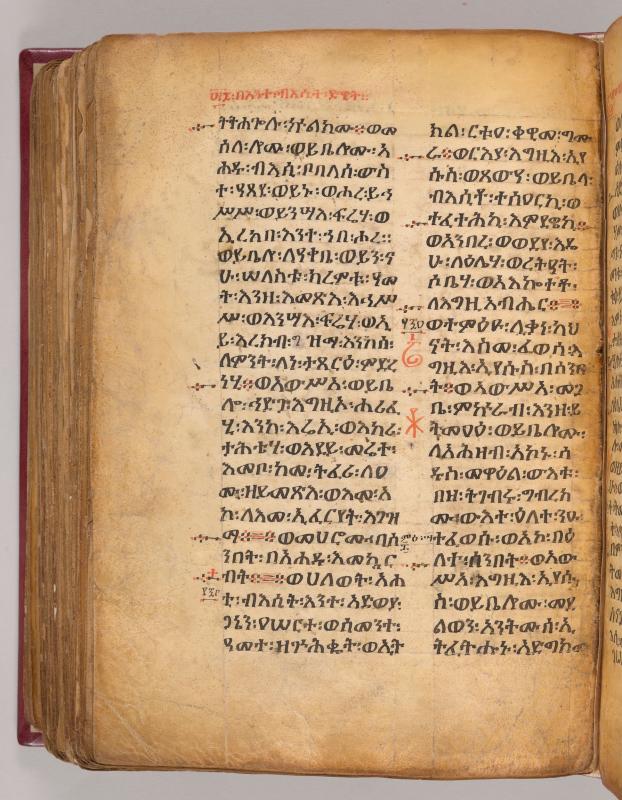 በእንተ፡ብእሲት፡ድዊት።
ትትሐጐሉ፡ኵልክሙ።ወመ
ሰለ፡ሎሙ፡ወይቤሎሙ፡አ
ሐዱ፡ብእሲ፡ቦበለሰ፡ውስ
ተ፡ዓጸደ፡ወይኑ፡ወሖረ፡ይኅ
ሥሥ፡ወይንሣእ፡ፍሬሃ፡ወ
ኢረከበ፡እንተ፡ኀበ፡ሖረ።
ወይቤሎ፡ለዓቃቤ፡ወይን፡ና
ሁ፡ሠለስቱ፡ክረምቱ፡ዓመ
ት፡እንዘ፡እመጽእ፡እኅሥ
ሥ፡ወእንሣእ፡ፍሬሃ፡ወኢ
ይ፡እረክብ፡ግዝማ፡እንከሰ፡
ለምንት፡ለነ፡ትጸርዕ፡ምድረ
ነሃ።ወአውሥአ፡ወይቤ
ሎ፡ኅድጋ፡እግዚኦ፡
ሃ፡እንከ፡እሬኢ፡ወእክሪ፡
ታሕቴሃ፡ወእደይ፡መሬተ፡
እመቦ፡ከመ፡ትፈሪ፡ለዐ
መ፡ዘይመጽእ፡ወእመ፡አ
ኮ፡ለእመ፡ኢፈርየት፡እገዝ
ማ።ወመሀሮሙ፡በሰ
ንበት፡በአሐዱ፡እመኲር
ብት።ወሀለወት፡አሐ
ቲ፡ብእሲት፡እንተ፡አይወያ፡
ጋኔን፡ዐሠርተ፡ወሰመንተ፡
ዓመተ፡ዘጕሕቈት፡ወእት
ክል፡ርቱዐ፡ቀዊመ፡ግሙ
ራ።ወርእያ፡እግዚእ፡ኢየ
ሱስ፡ወጸውዓ፡ወይቤላ፡
ብእሲቶ፡ተሰዐርኪ፡ወ
ተፈተሕኪ፡እምደዌኪ።
ወአንበረ፡ወወደየ፡እዴ
ሁ፡ላዕሌሃ፡ወረትዐት፡
ሶቤሃ፡ወአእኰተቶ፡
ለእግዚአብሔር።
ወተምዕዐ፡ሊቀ፡ካህ
ናት፡እስመ፡ፈወሰ፡እ
ግዚእ፡ኢየሱስ፡በሰንበ
ት።ወአውሥአ፡መጋ
ቤ፡ምኵራብ፡እንዘ፡ይ
ትመዐዕ፡ወይቤሎሙ፡
ለአሕዛብ፡አኮኑ፡ሰ
ዱስ፡መዋዕል፡ውእቱ፡
በዘ፡ትገብሩ፡ግብረክ
ሙ፡ውእተ፡ዕለተ፡ንዑ፡
ተፈወሱ፡ወአኮ፡በዕ
ለተ፡ሰንበት።ወአው
ሥአ፡እግዚእ፡ኢየሱ
ስ፡ወይቤሎሙ፡መደ
ልወን፡አንትሙሰ፡ኢ
ትፈትሑኑ፡አድግክሙ